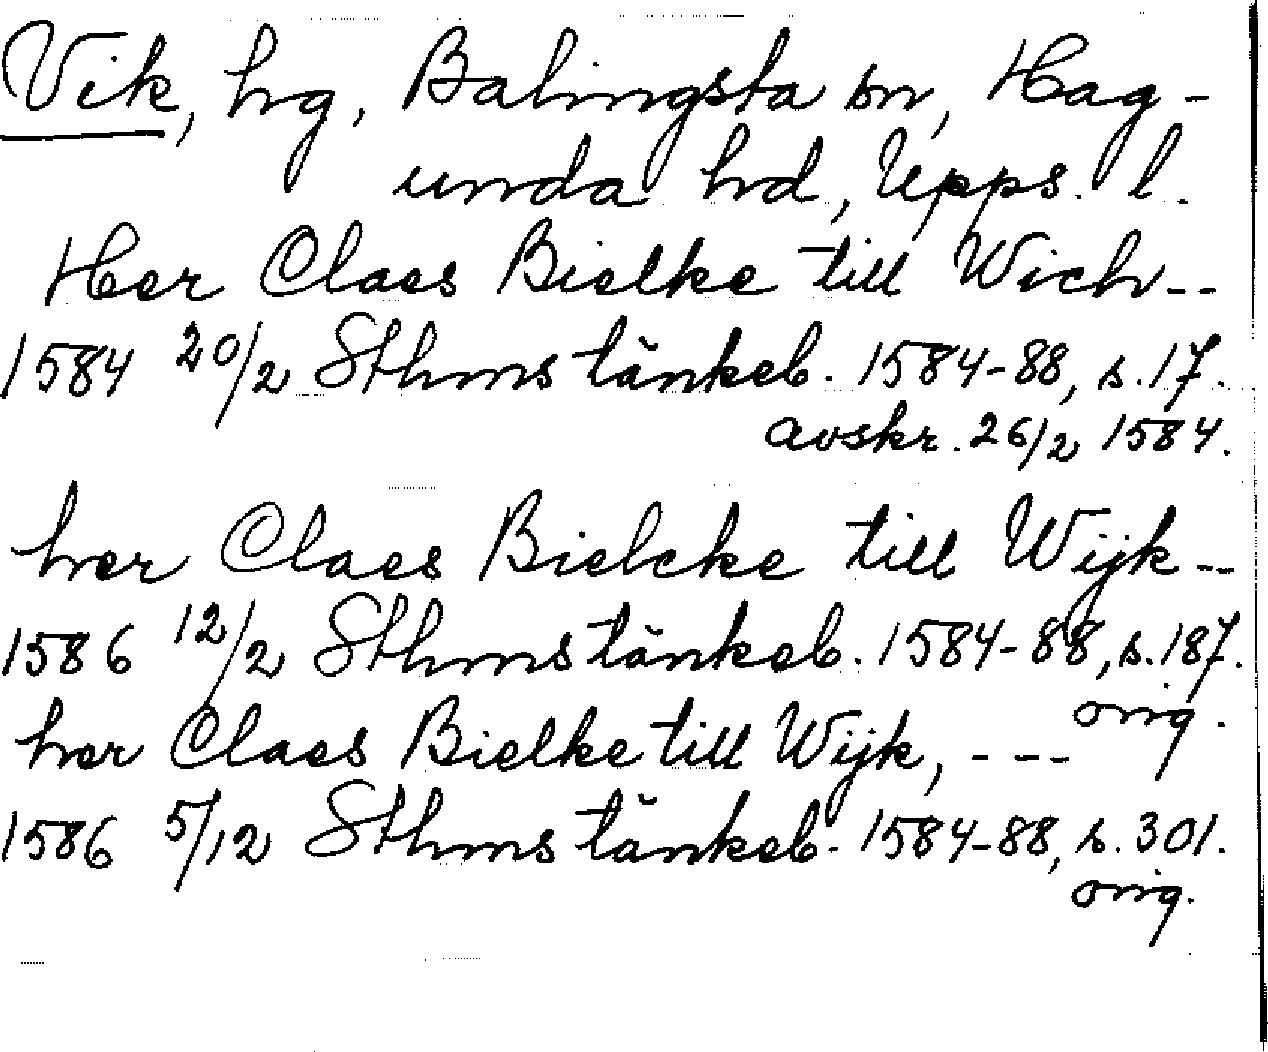 Vik, hg, Balingsta sn, Hag-
unda hd, Upps. l.
Her Claes Bielke till Wich--
1584 20/2 Sthms tänkeb. 1584-88, s. 17.
avskr. 26/2 1584.
her Claes Bielcke till Wijk--
1586 12/2 Sthms tänkeb. 1584-88, s. 187.
orig.
her Claes Bielke till Wijk, ---
1586 5/12 Sthms tänkeb. 1584-88, s. 301.
orig.